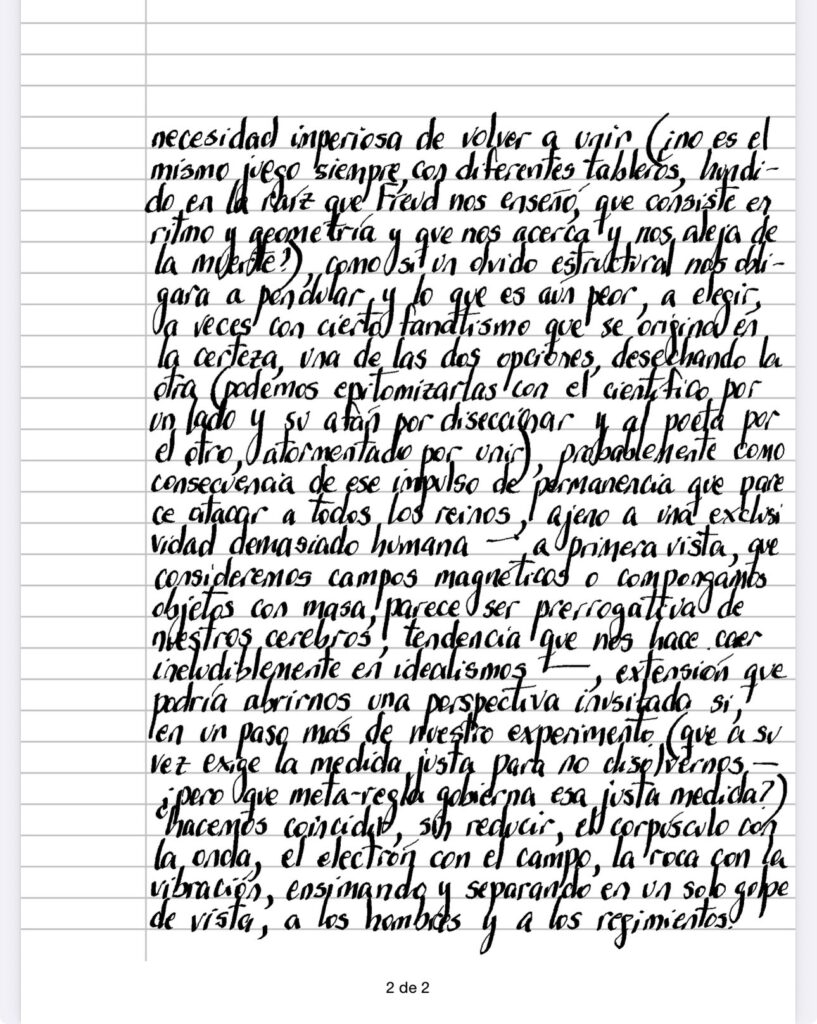 necesidad imperiosa de volver a unir (¡no es el
mismo juego siempre, con diferentes tableros, hundi-
do en la raíz que Freud nos enseñó, que consiste en
ritmo y geometría y que nos acerca y nos aleja de
la muerte?), como si un olvido estructural nos obli-
gara a pendular, y lo que es aún peor, a elegir,
a veces con cierto fanatismo que se origina en
la certeza, una de las dos opciones, desechando la
otra (podemos epitomizarlas con el científico por
un lado y su afán por diseccionar y al poeta por
el otro, atormentado por unir), probablemente como
consecuencia de ese impulso de permanencia que pare
ce atacar a todos los reinos, ajeno a una exclusi
vidad demasiado humana —, a primera vista, que
consideremos campos magnéticos o compongamos
objetos con masa, parece ser prerrogativa de
nuestros cerebros, tendencia que nos hace caer
ineludiblemente en idealismos —, extensión que
podría abrirnos una perspectiva inusitada si,
en un paso más de nuestro experimento (que a su
vez exige la medida justa para no disolvernos —
¿pero que meta-regla gobierna esa justa medida?)
hacemos coincidir, sin reducir, el corpúsculo con
la onda, el electrón con el campo, la roca con la
vibración, ensimando y separando en un solo golpe
de vista, a los hombres y a los regimientos.
2 de 2